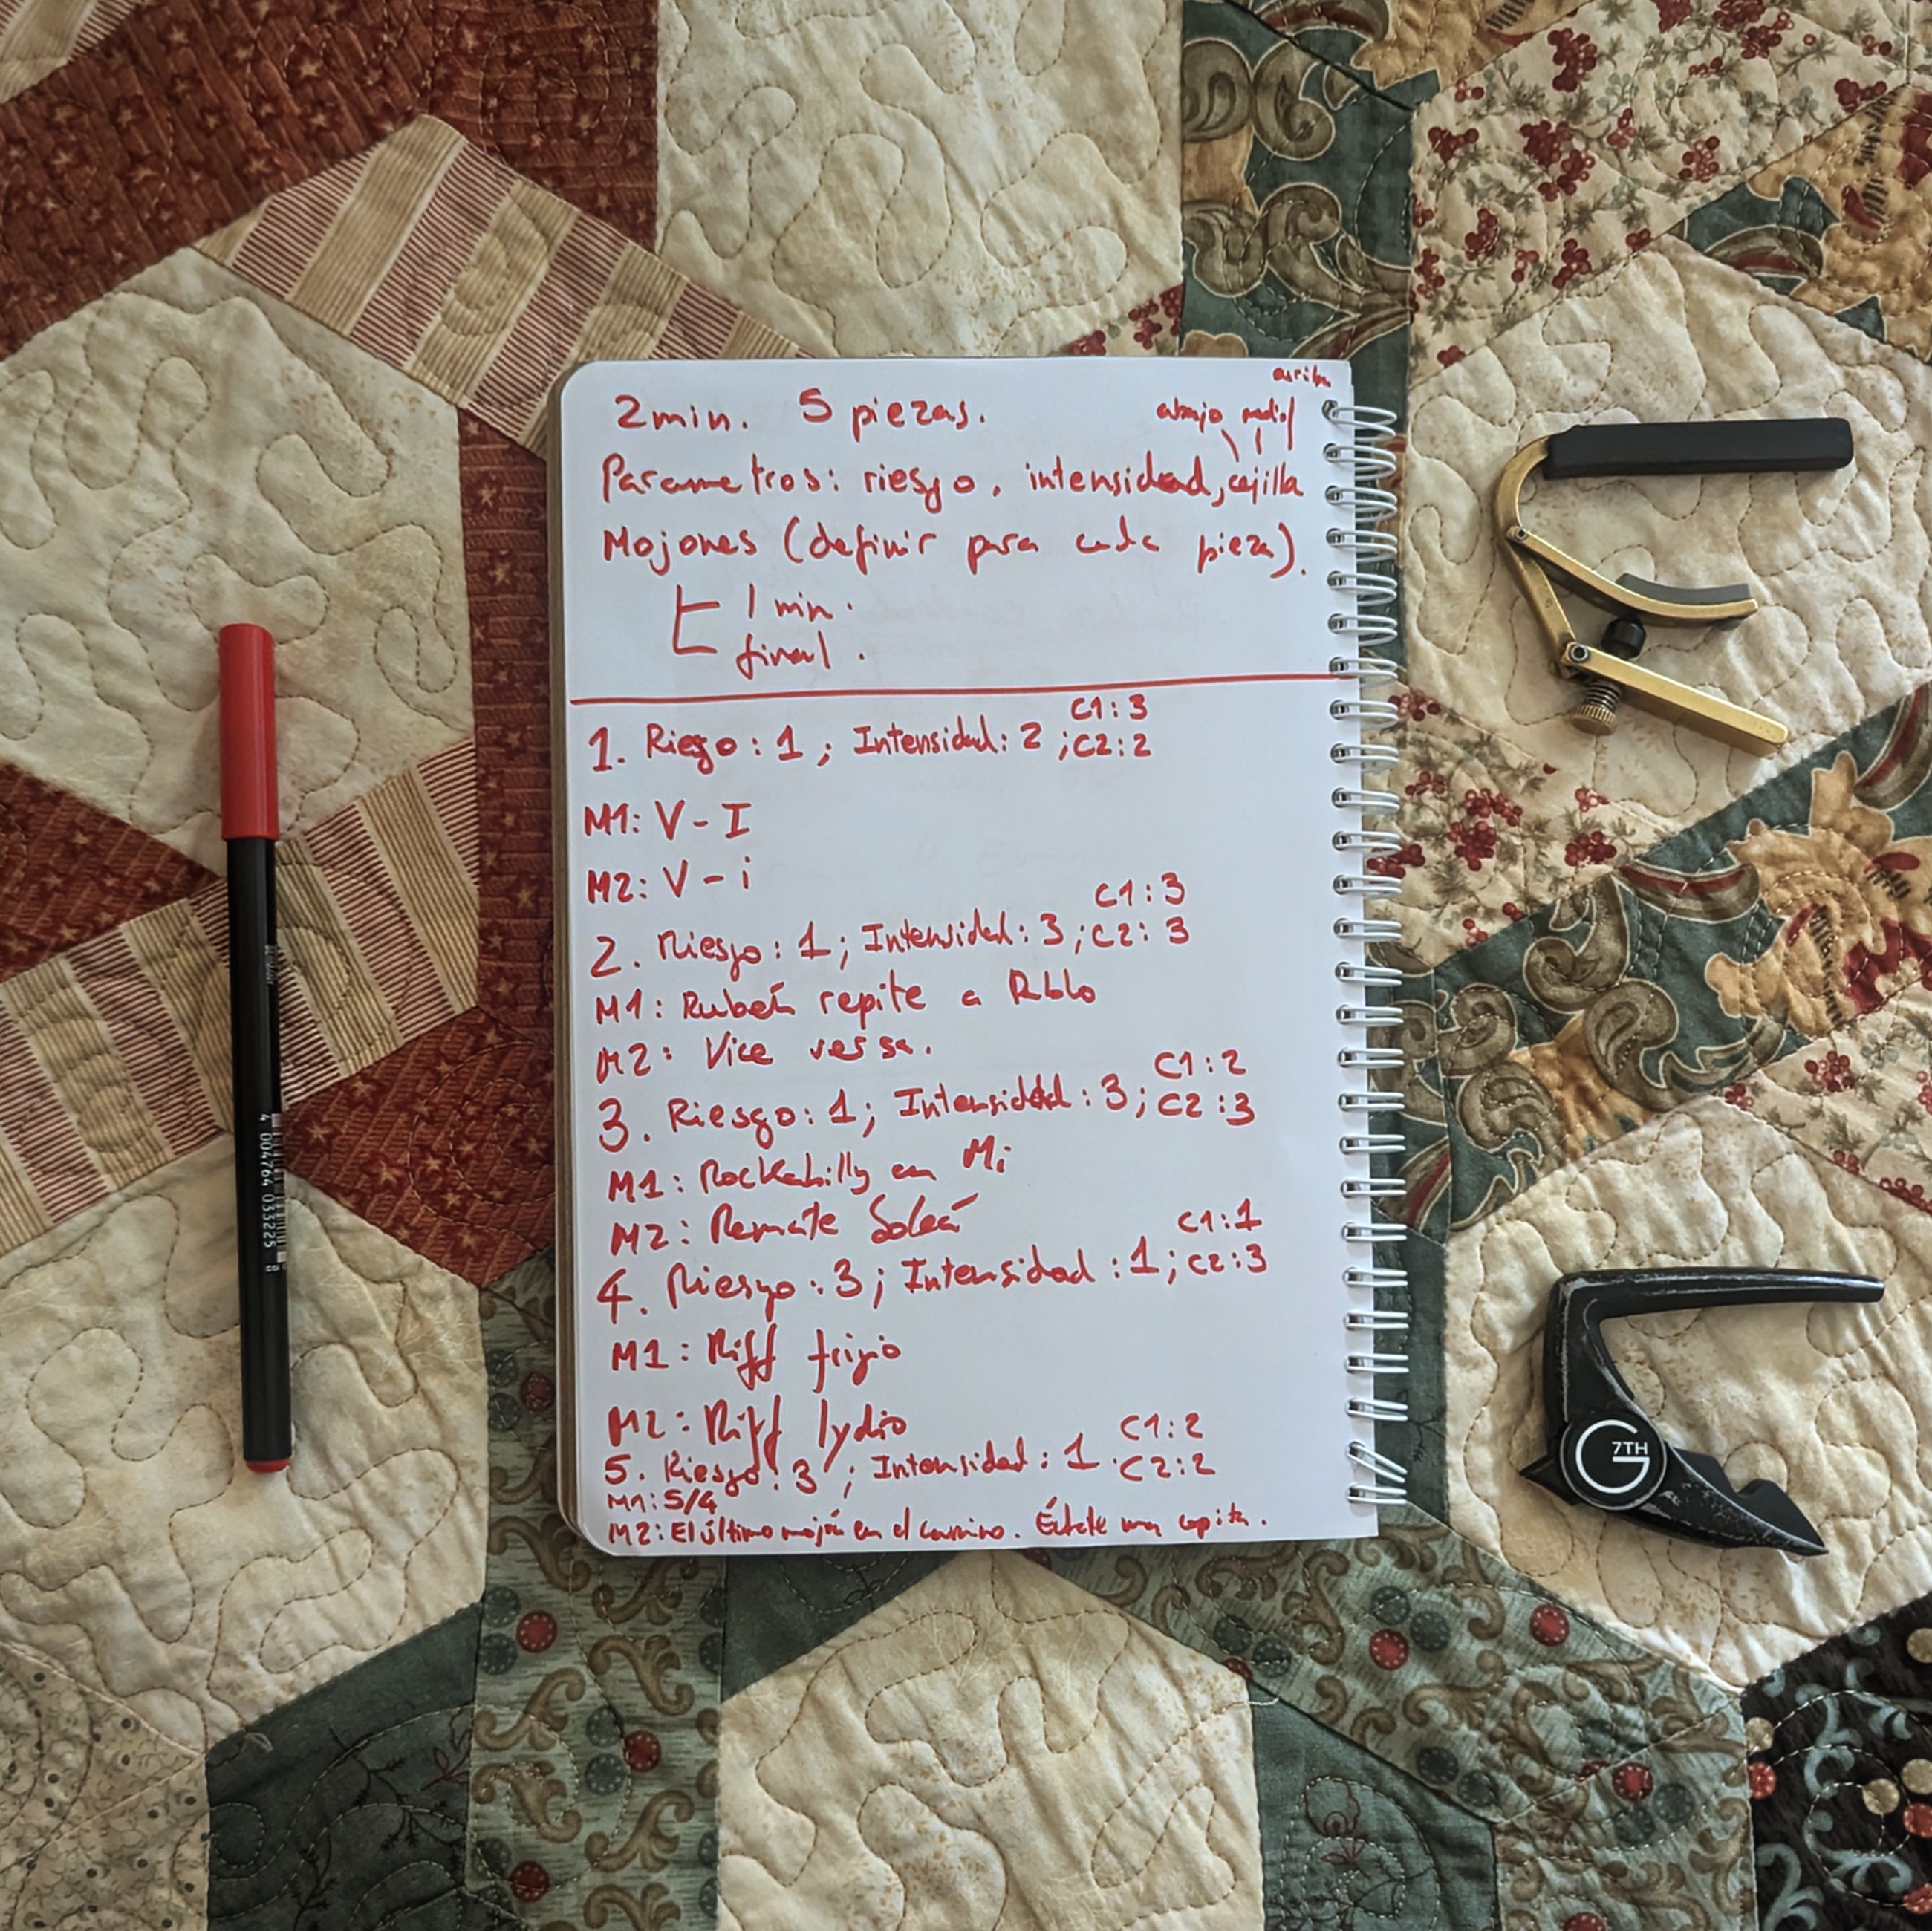 arriba
2min. 5 piezas.
abajo medio
Parametros: riesgo, intensidad, cejilla
Mojones (definir para cada pieza).
1 min.
final.
1. Riesgo: 1; Intensidad: 2; C2:2
C1:3
M1: V-I
M2: V-i
C1:3
2. Riesgo: 1; Intensidad: 3; C2: 3
M1: Rubén repite a Pablo
M2: Vice versa.
C1:2
3. Riesgo: 1; Intensidad: 3; C2:3
M1: Rockabilly en Mi
M2: Remate Soleá
C1:1
4. Riesgo: 3; Intensidad: 1; C2:3
M1: Riff frigio
M2: Riff lydio
C1:2
5. Riesgo: 3; Intensidad: 1 C2:2
M1: 5/4
M2: El último mojón en el camino. Échate una copita.
4 004764 033225
G 7TH